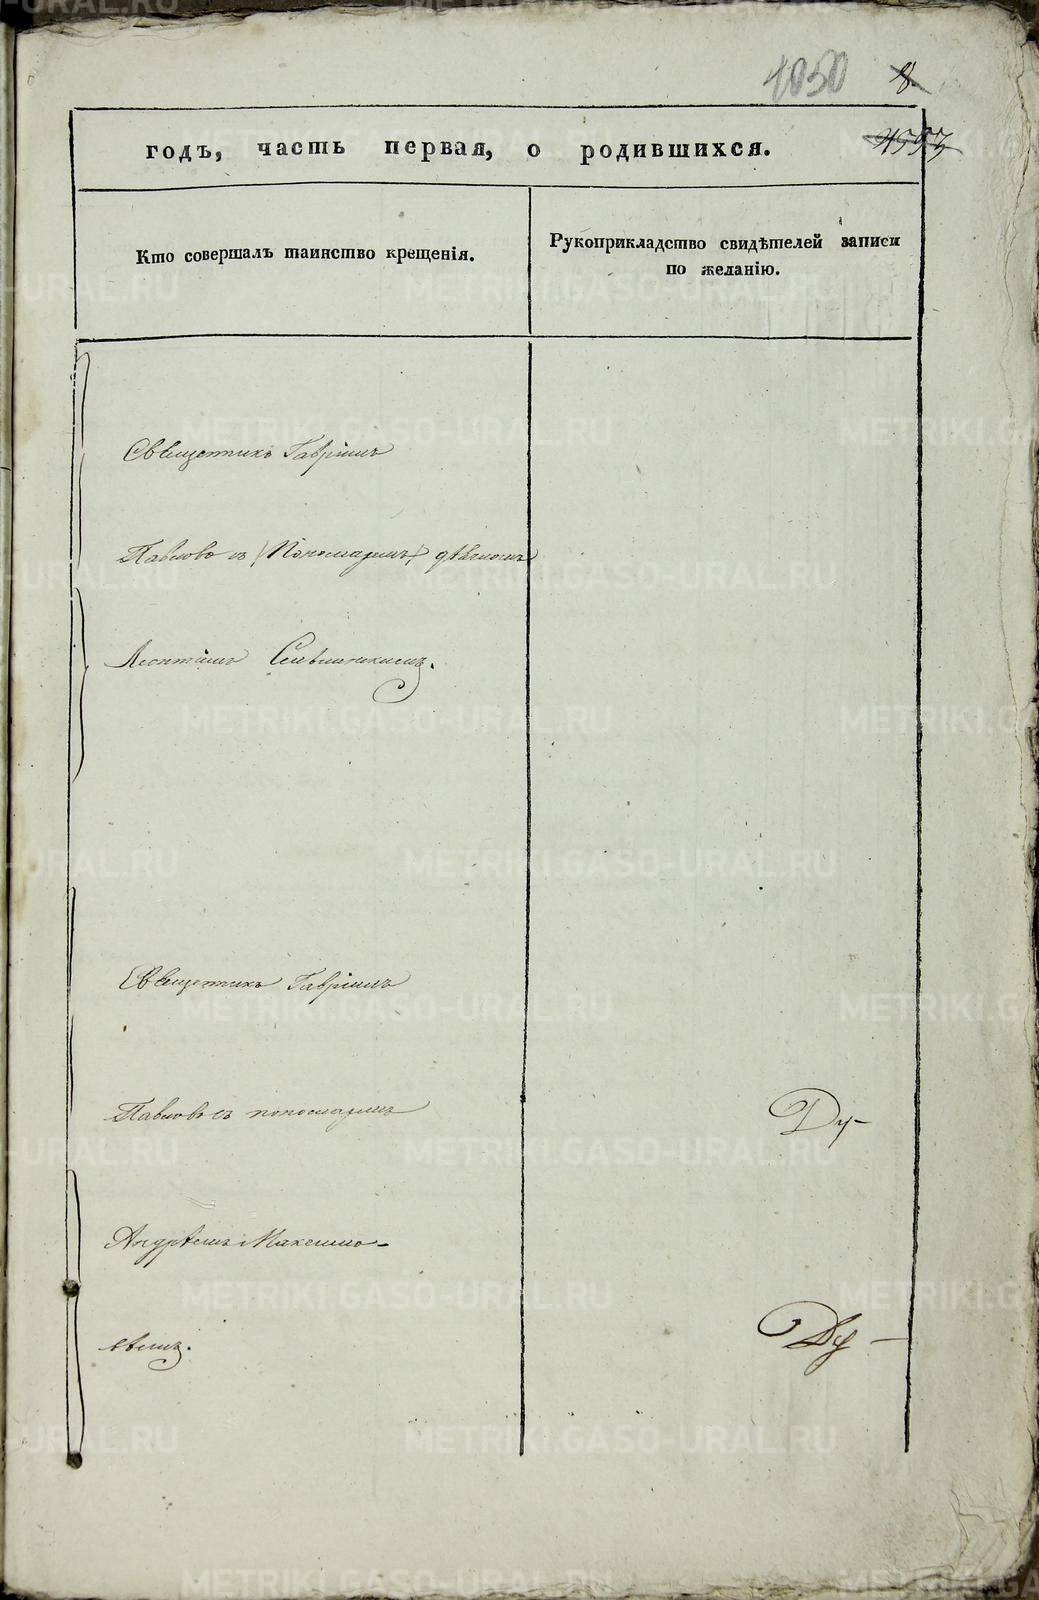 1050 8
4593
годъ, часть первая, о родившихся.
Кто совершалъ таинство крещенія.
Рукоприкладство свидѣтелей записи
по желанію.
Священникъ Гавріилъ
Павловъ съ (Пономаремъ)
Леонтіемъ
Священникъ Гавріилъ
Павловъ съ пономаремъ
Андреемъ Максимо-
вымъ.
METRIKI.GASO-URAL.RU